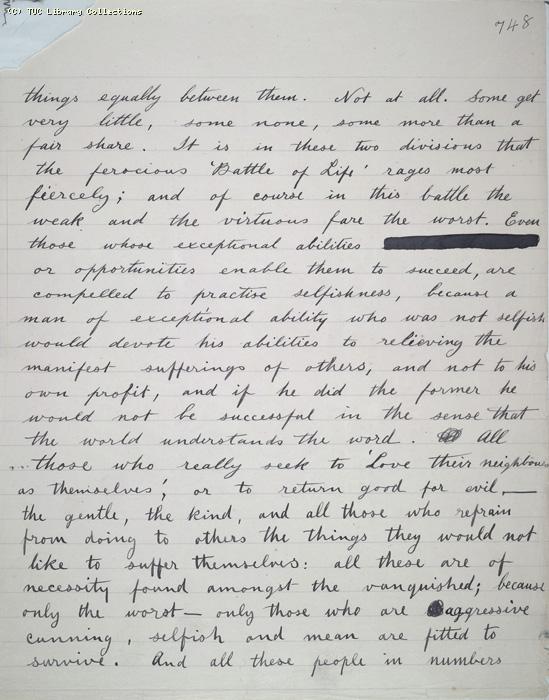 (C) TUC Library Collections
748
things equally between them. Not at all. Some get
very little, some none, some more than a
fair share. It is in these two divisions that
the ferocious 'Battle of Life' rages most
fiercely; and of course in this battle the
weak and the virtuous fare the worst. Even
those whose exceptional abilities
or opportunities enable them to succeed, are
compelled to practise selfishness, because a
man of exceptional ability who was not selfish
would devote his abilities to relieving the
manifest sufferings of others, and not to his
own profit, and if he did the former he
would not be successful in the sense that
the world understands the word. All
...those who really seek to 'Love their neighbours
as themselves', or to return good for evil,—
the gentle, the kind, and all those who refrain
from doing to others the things they would not
like to suffer themselves: all these are of
necessity found amongst the vanquished; because
only the worst — only those who are aggressive
cunning, selfish and mean are fitted to
survive. And all these people in numbers